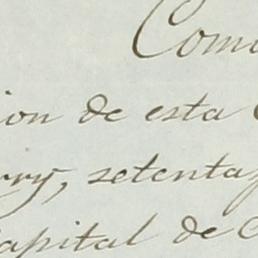 Com
ion de esta
rry, setenta
apital de C